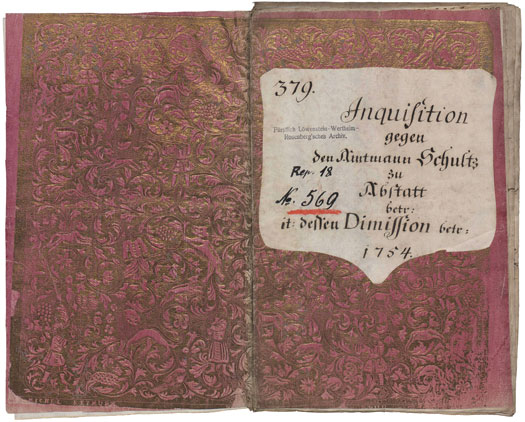 379.
Inquisition
Fürstlich Löwenstein-Wertheim-
Rosenberg'sches Archiv.
gegen
den Amtmann Schultz
Rep. 18
zu
No. 569
Abstatt
betr:
it: dessen Dimission betr:
1754.